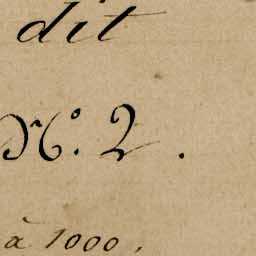 dit
N°. 2.
à 1000.